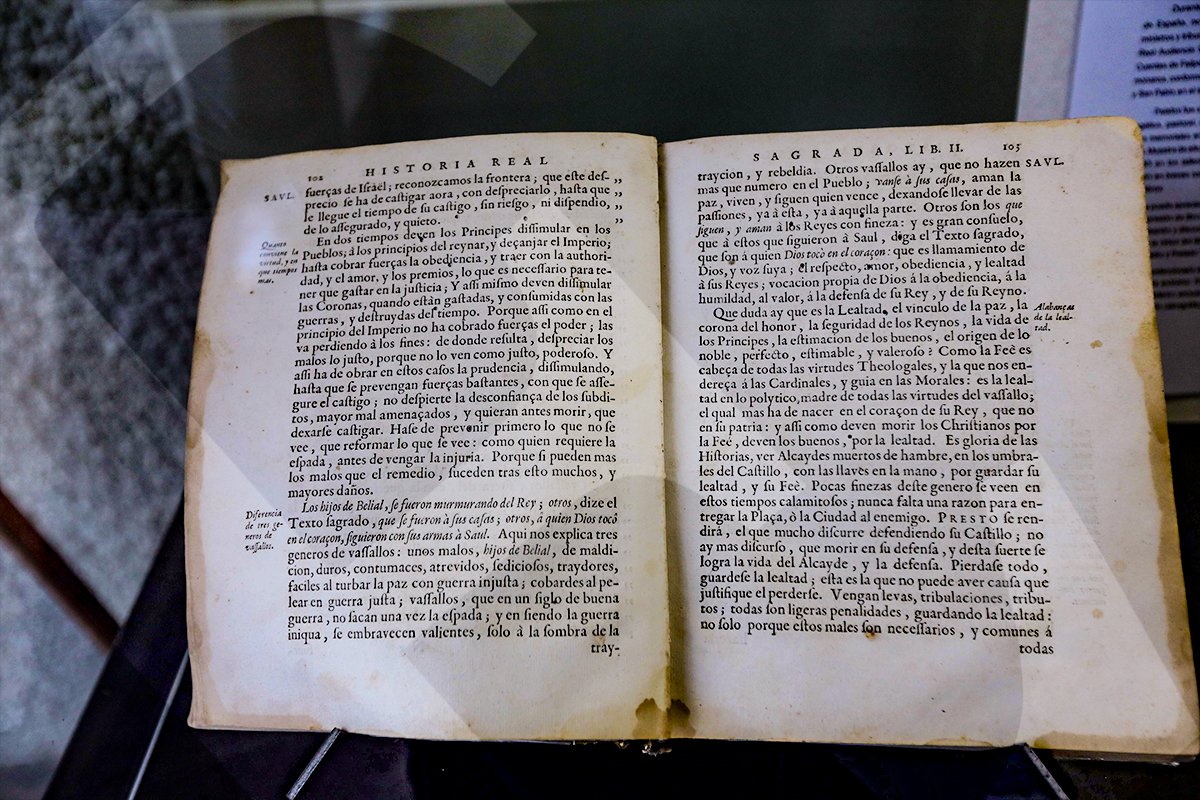 102
HISTORIA REAL
SAVL.
fuerças de Israèl; reconozcamos la frontera; que este des- ,,
precio se ha de castigar aora, con despreciarlo, hasta que ,,
le llegue el tiempo de su castigo, sin riesgo, ni dispendio, ,,
de lo assegurado, y quieto. ,,
Quanto
conviene la
virtud, y en
que tiempos
mas.
En dos tiempos deven los Principes dissimular en los
Pueblos; à los principios del reynar, y deçanjar el Imperio;
hasta cobrar fuerças la obediencia, y traer con la authori-
dad, y el amor, y los premios, lo que es necessario para te-
ner que gastar en la justicia; Y assi mismo deven dissimular
las Coronas, quando están gastadas, y consumidas con las
guerras, y destruydas del tiempo. Porque assi como en el
principio del Imperio no ha cobrado fuerças el poder; las
va perdiendo à los fines: de donde resulta, despreciar los
malos lo justo, porque no lo ven como justo, poderoso. Y
assi ha de obrar en estos casos la prudencia, dissimulando,
hasta que se prevengan fuerças bastantes, con que se asse-
gure el castigo; no despierte la desconfiança de los subdi-
tos, mayor mal amenaçados, y quieran antes morir, que
dexarse castigar. Hase de prevenir primero lo que no se
vee, que reformar lo que se vee: como quien requiere la
espada, antes de vengar la injuria. Porque si pueden mas
los malos que el remedio, suceden tras esto muchos, y
mayores daños.
Diferencia
de tres ge-
neros de
vassallos.
Los hijos de Belial, se fueron murmurando del Rey; otros, dize el
Texto sagrado, que se fueron à sus casas; otros, á quien Dios tocò
en el coraçon, siguieron con sus armas à Saul. Aqui nos explica tres
generos de vassallos: unos malos, hijos de Belial, de maldi-
cion, duros, contumaces, atrevidos, sediciosos, traydores,
faciles al turbar la paz con guerra injusta; cobardes al pe-
lear en guerra justa; vassallos, que en un siglo de buena
guerra, no sacan una vez la espada; y en siendo la guerra
iniqua, se embravecen valientes, solo à la sombra de la
tray-
SAGRADA, LIB. II.
103
SAVL.
traycion, y rebeldia. Otros vassallos ay, que no hazen
mas que numero en el Pueblo; vanse à sus casas, aman la
paz, viven, y siguen quien vence, dexandose llevar de las
passiones, ya à esta, ya à aquella parte. Otros son los que
siguen, y aman à los Reyes con fineza: y es gran consuelo,
que à estos que siguieron à Saul, diga el Texto sagrado,
que son à quien Dios tocò en el coraçon: que es llamamiento de
Dios, y voz suya; el respecto, amor, obediencia, y lealtad
à sus Reyes; vocacion propia de Dios à la obediencia, á la
humildad, al valor, á la defensa de su Rey, y de su Reyno.
Alabanças
de la leal-
tad.
Que duda ay que es la Lealtad, el vinculo de la paz, la
corona del honor, la seguridad de los Reynos, la vida de
los Principes, la estimacion de los buenos, el origen de lo
noble, perfecto, estimable, y valeroso? Como la Feè es
cabeça de todas las virtudes Theologales, y la que nos en-
dereça á las Cardinales, y guia en las Morales: es la leal-
tad en lo polytico, madre de todas las virtudes del vassallo;
el qual mas ha de nacer en el coraçon de su Rey, que no
en su patria: y assi como deven morir los Christianos por
la Feé, deven los buenos, por la lealtad. Es gloria de las
Historias, ver Alcaydes muertos de hambre, en los umbra-
les del Castillo, con las llaves en la mano, por guardar su
lealtad, y su Feè. Pocas finezas deste genero se veen en
estos tiempos calamitosos; nunca falta una razon para en-
tregar la Plaça, ò la Ciudad al enemigo. PRESTO se ren-
dirá, el que mucho discurre defendiendo su Castillo; no
ay mas discurso, que morir en su defensa, y desta suerte se
logra la vida del Alcayde, y la defensa. Pierdase todo,
guardese la lealtad; esta es la que no puede aver causa que
justifique el perderse. Vengan levas, tribulaciones, tribu-
tos; todas son ligeras penalidades, guardando la lealtad:
no solo porque estos males son necessarios, y comunes á
todas